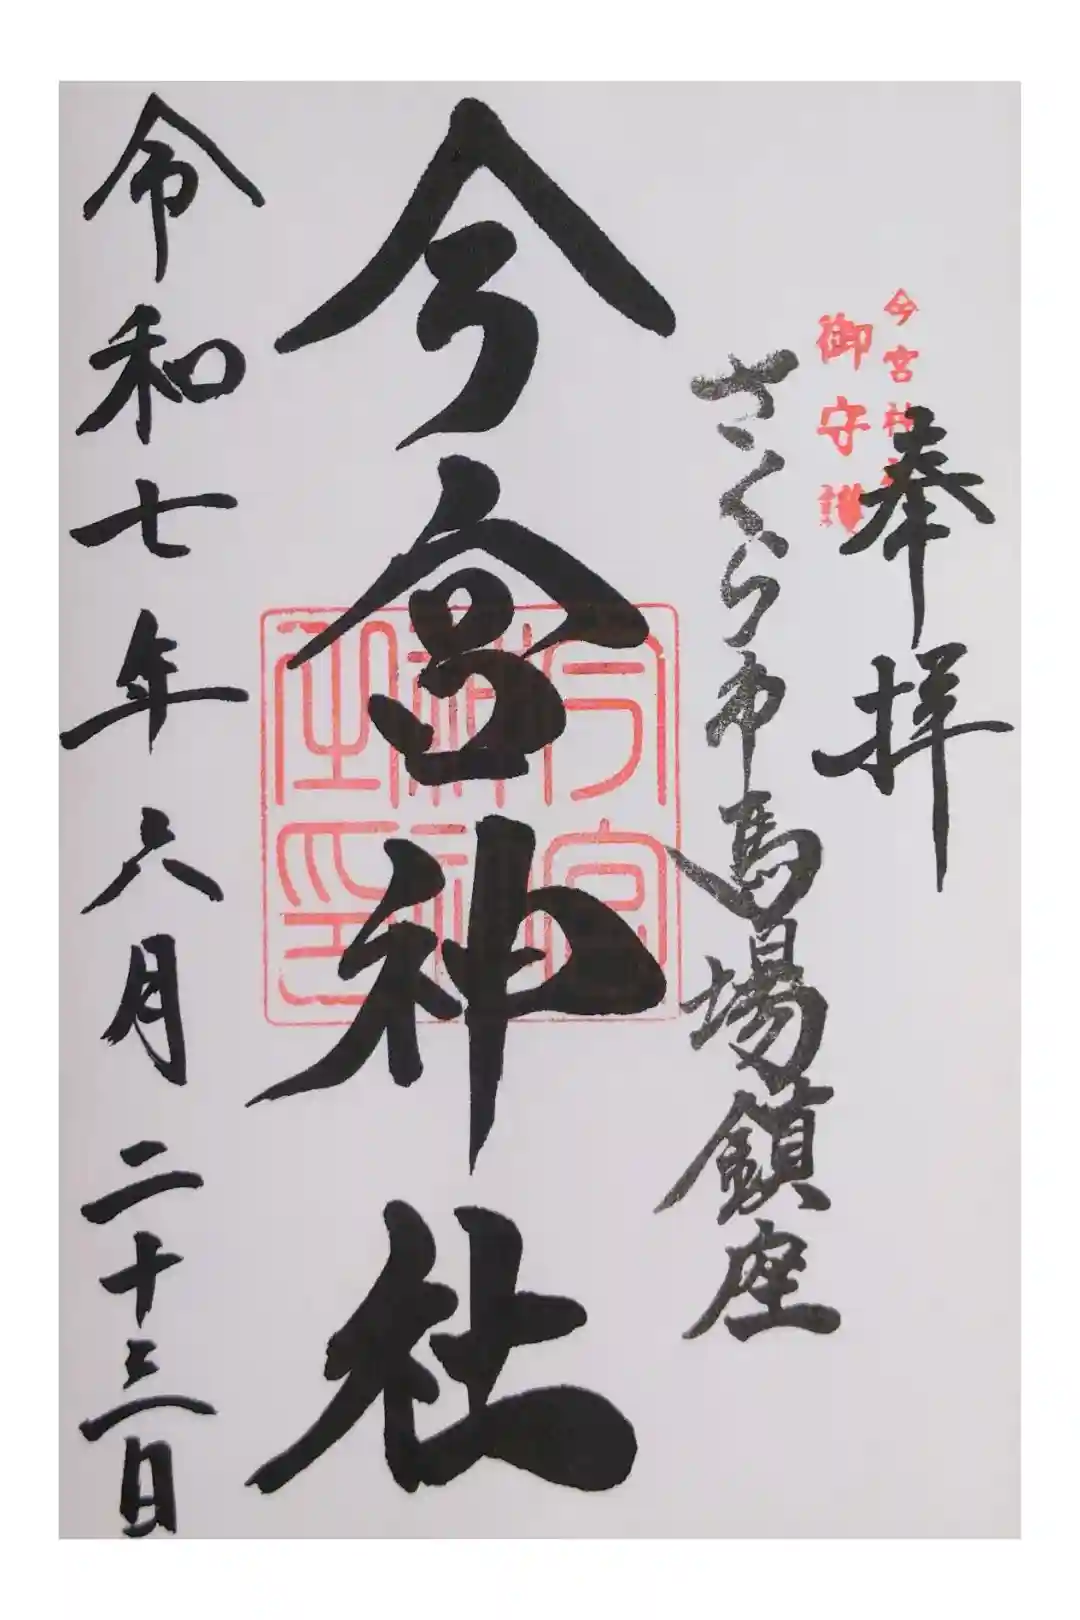 今宮神社
御守護
奉拝
さくら市馬場鎮座
今宮神社
今宮神社之印
令和七年六月二十三日